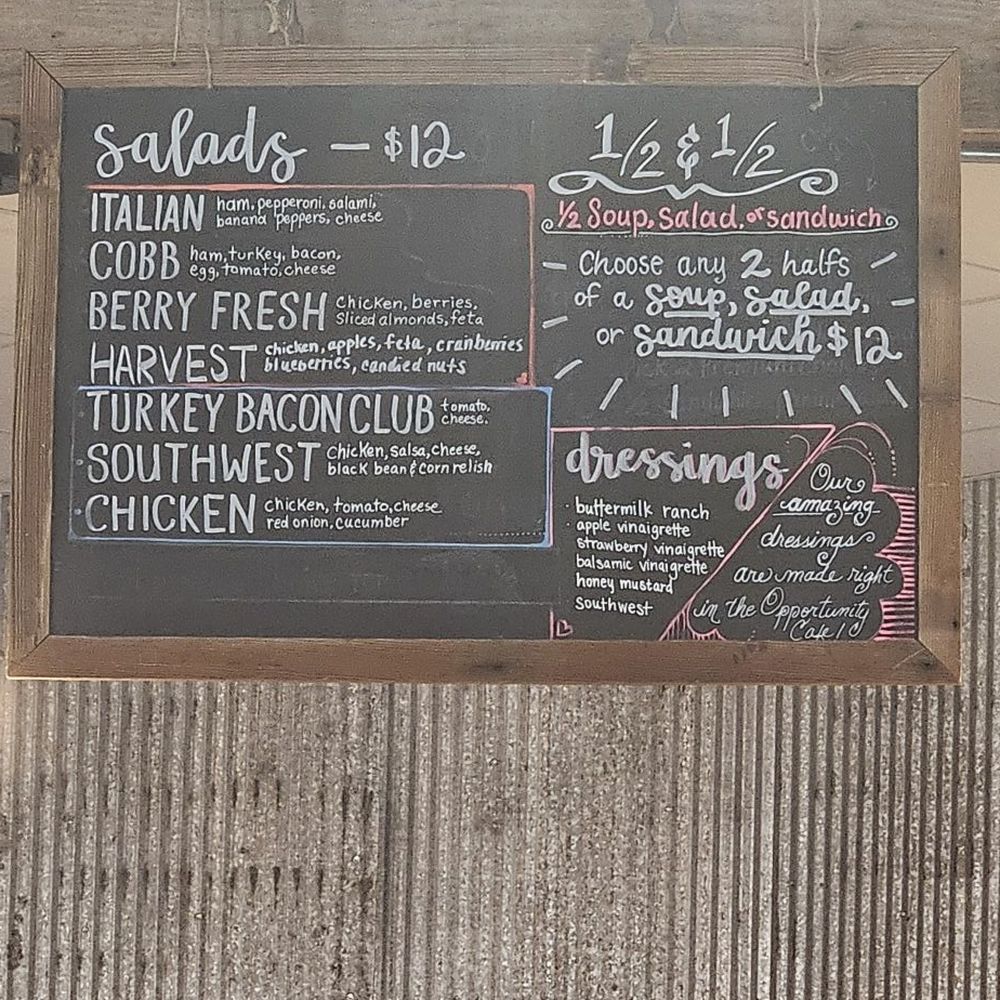 salads - $12
ITALIAN ham, pepperoni, salami,
banana peppers, cheese
COBB ham, turkey, bacon,
egg, tomato, cheese
BERRY FRESH Chicken, berries,
Sliced almonds, feta
HARVEST chicken, apples, feta, cranberries
blueberries, candied nuts
TURKEY BACON CLUB tomato,
cheese.
SOUTHWEST chicken, salsa, cheese,
black bean & corn relish
CHICKEN chicken, tomato, cheese
red onion, cucumber
1/2 & 1/2
1/2 Soup, Salad, or sandwich
Choose any 2 halfs
of a soup, salad,
or sandwich $12
dressings
buttermilk ranch
apple vinaigrette
strawberry vinaigrette
balsamic vinaigrette
honey mustard
southwest
Our
amazing
dressings
are made right
in the Opportunity
Cafe!